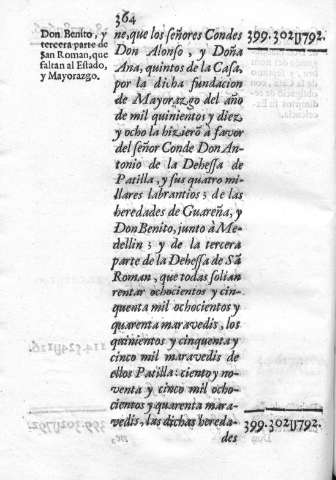 364
Don Benito, y
tercera parte de
San Roman, que
faltan al Estado,
y Mayorazgo.
ne, que los señores Condes
Don Alonso, y Doña
Ana, quintos de la Casa,
por la dicha fundacion
de Mayorazgo del año
de mil quinientos y diez
y ocho la hizierõ à favor
del señor Conde Don An-
tonio de la Dehessa de
Patilla, y sus quatro mi-
llares labrantios; de las
heredades de Guareña, y
Don Benito, junto à Me-
dellin; y de la tercera
parte de la Dehessa de Sã
Roman, que todas solian
rentar ochocientos y cin-
quenta mil ochocientos y
quarenta maravedis, los
quinientos y cinquenta y
cinco mil maravedis de
ellos Patilla: ciento y no-
venta y cinco mil ocho-
cientos y quarenta mara-
vedis, las dichas hereda-
des
399.302U792.
399.302U792.